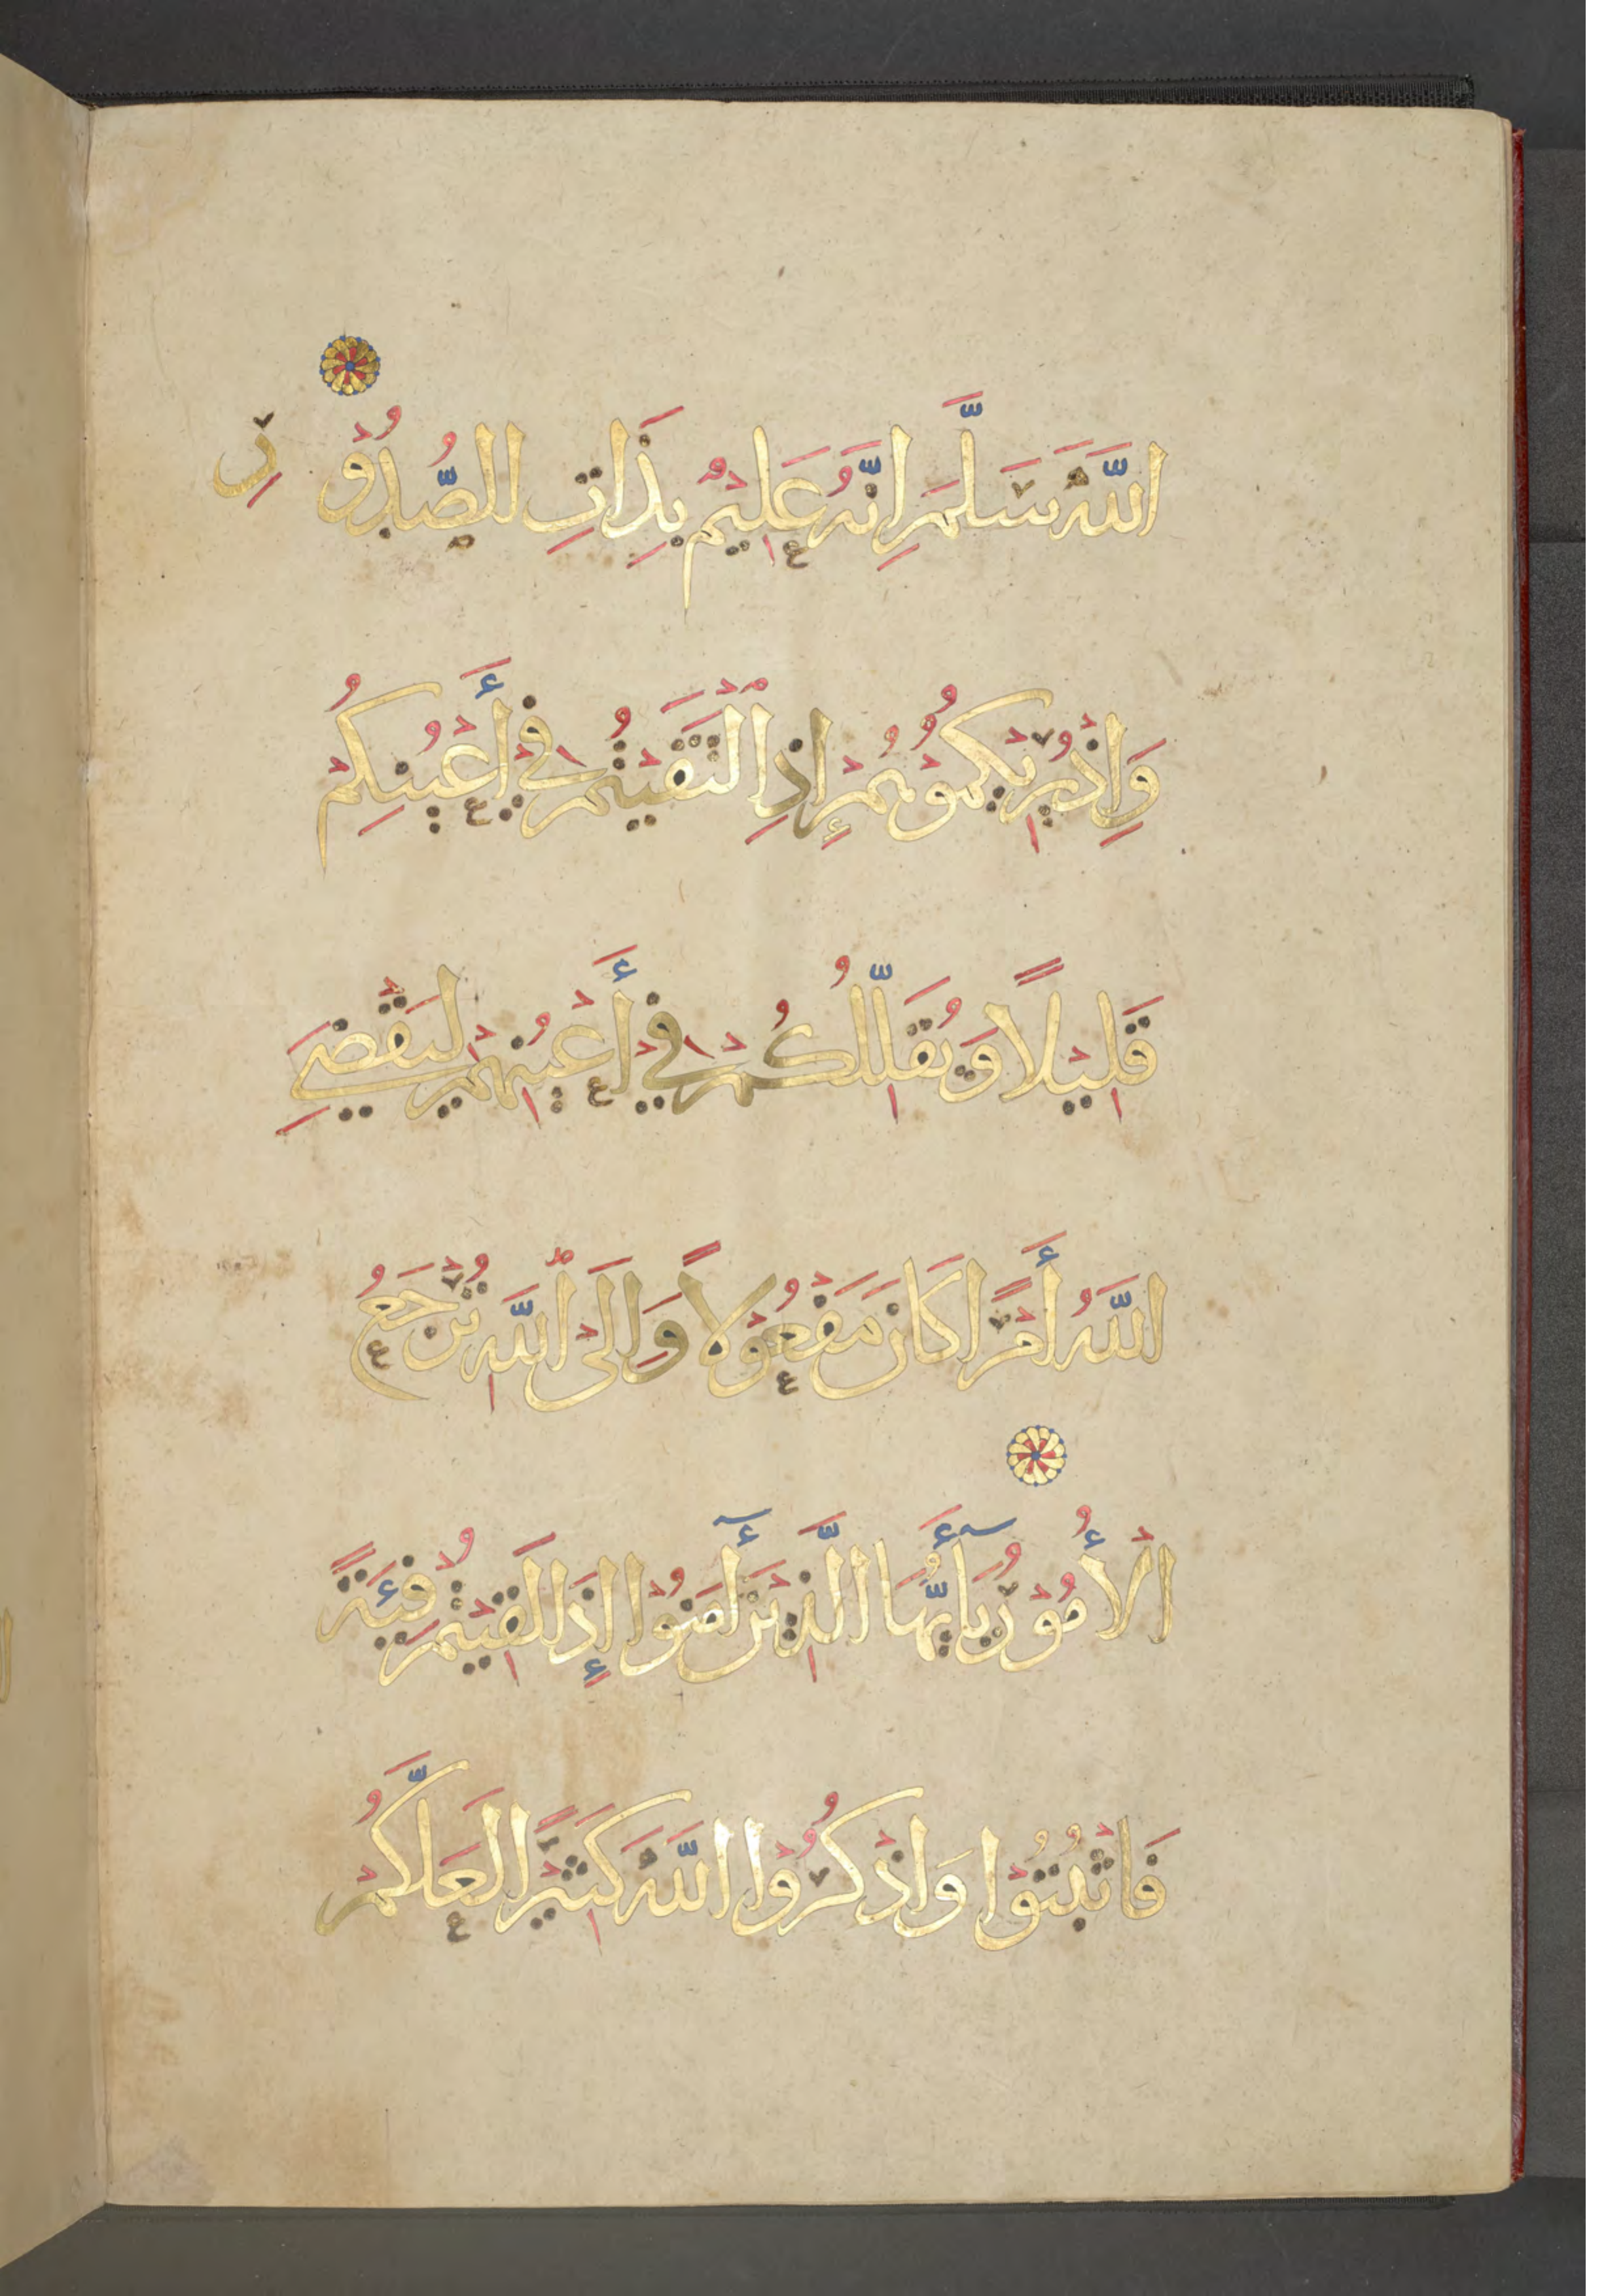 اللَّهَ سَلَّمَ اِنَّهُ عَلِيْمٌ بِذَاتِ الصُّدُوْرِ
وَاِذْ يُرِيْكُمُوْهُمْ إِذِ الْتَقَيْتُمْ فِيْ أَعْيُنِكُمْ
قَلِيْلًا وَيُقَلِّلُكُمْ فِيْ أَعْيُنِهِمْ لِيَقْضِيَ
اللَّهُ أَمْرًا كَانَ مَفْعُوْلًا وَاِلَى اللَّهِ تُرْجَعُ
الْأُمُوْرُ يَآأَيُّهَا الَّذِيْنَ أٓمَنُوْا إِذَا لَقِيْتُمْ فِئَةً
فَاثْبُتُوْا وَاذْكُرُوْا اللَّهَ كَثِيْرًا لَعَلَّكُمْ